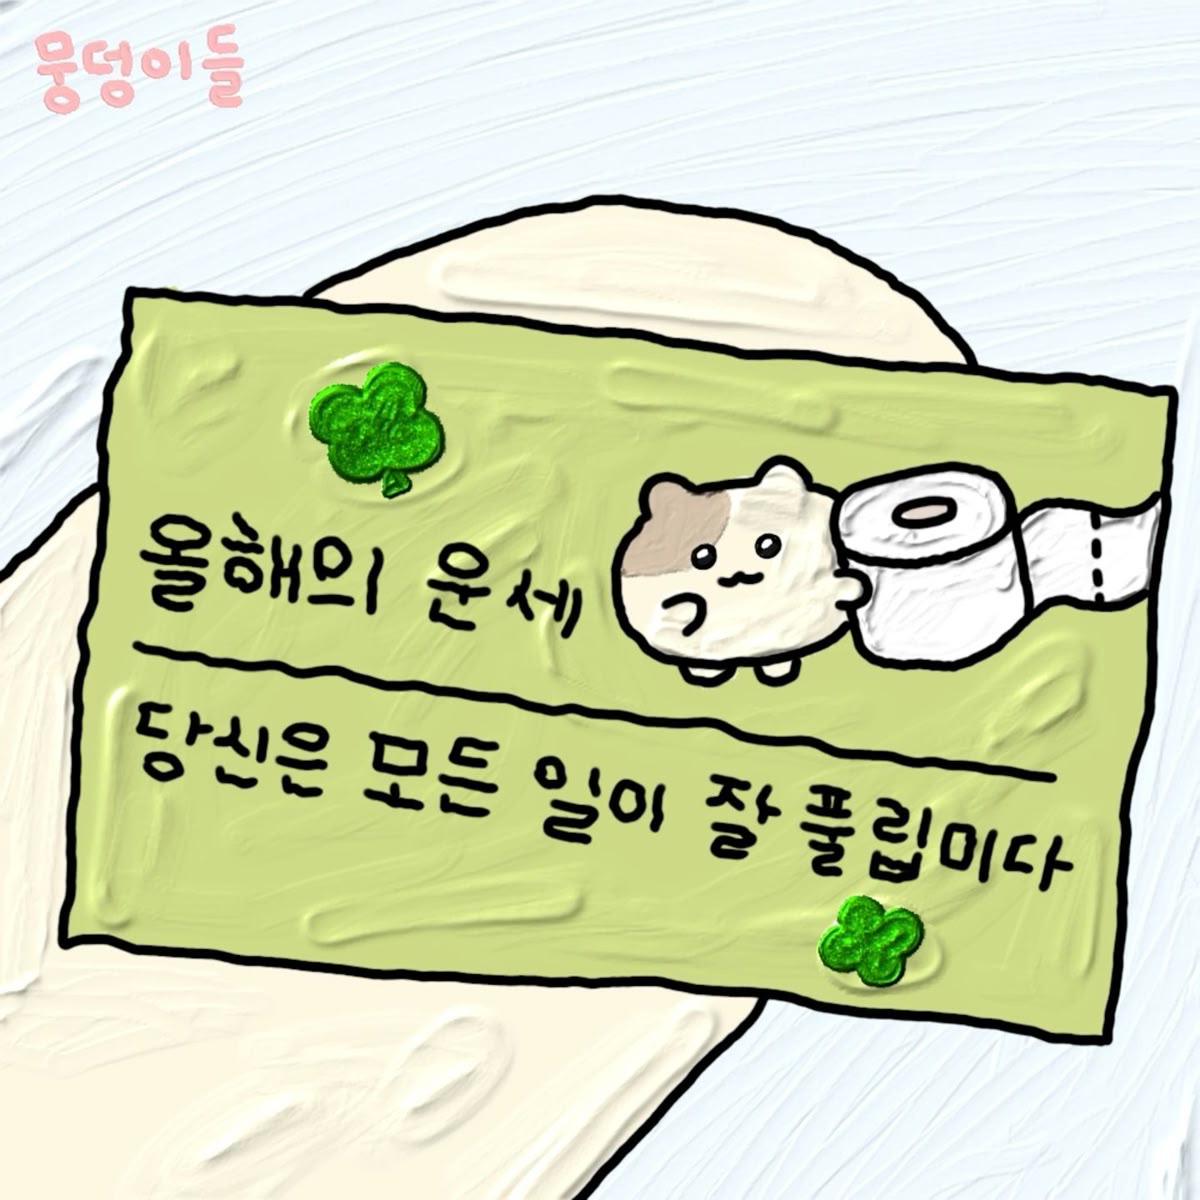 뭉덩이들
올해의 운세
당신은 모든 일이 잘 풀립미다